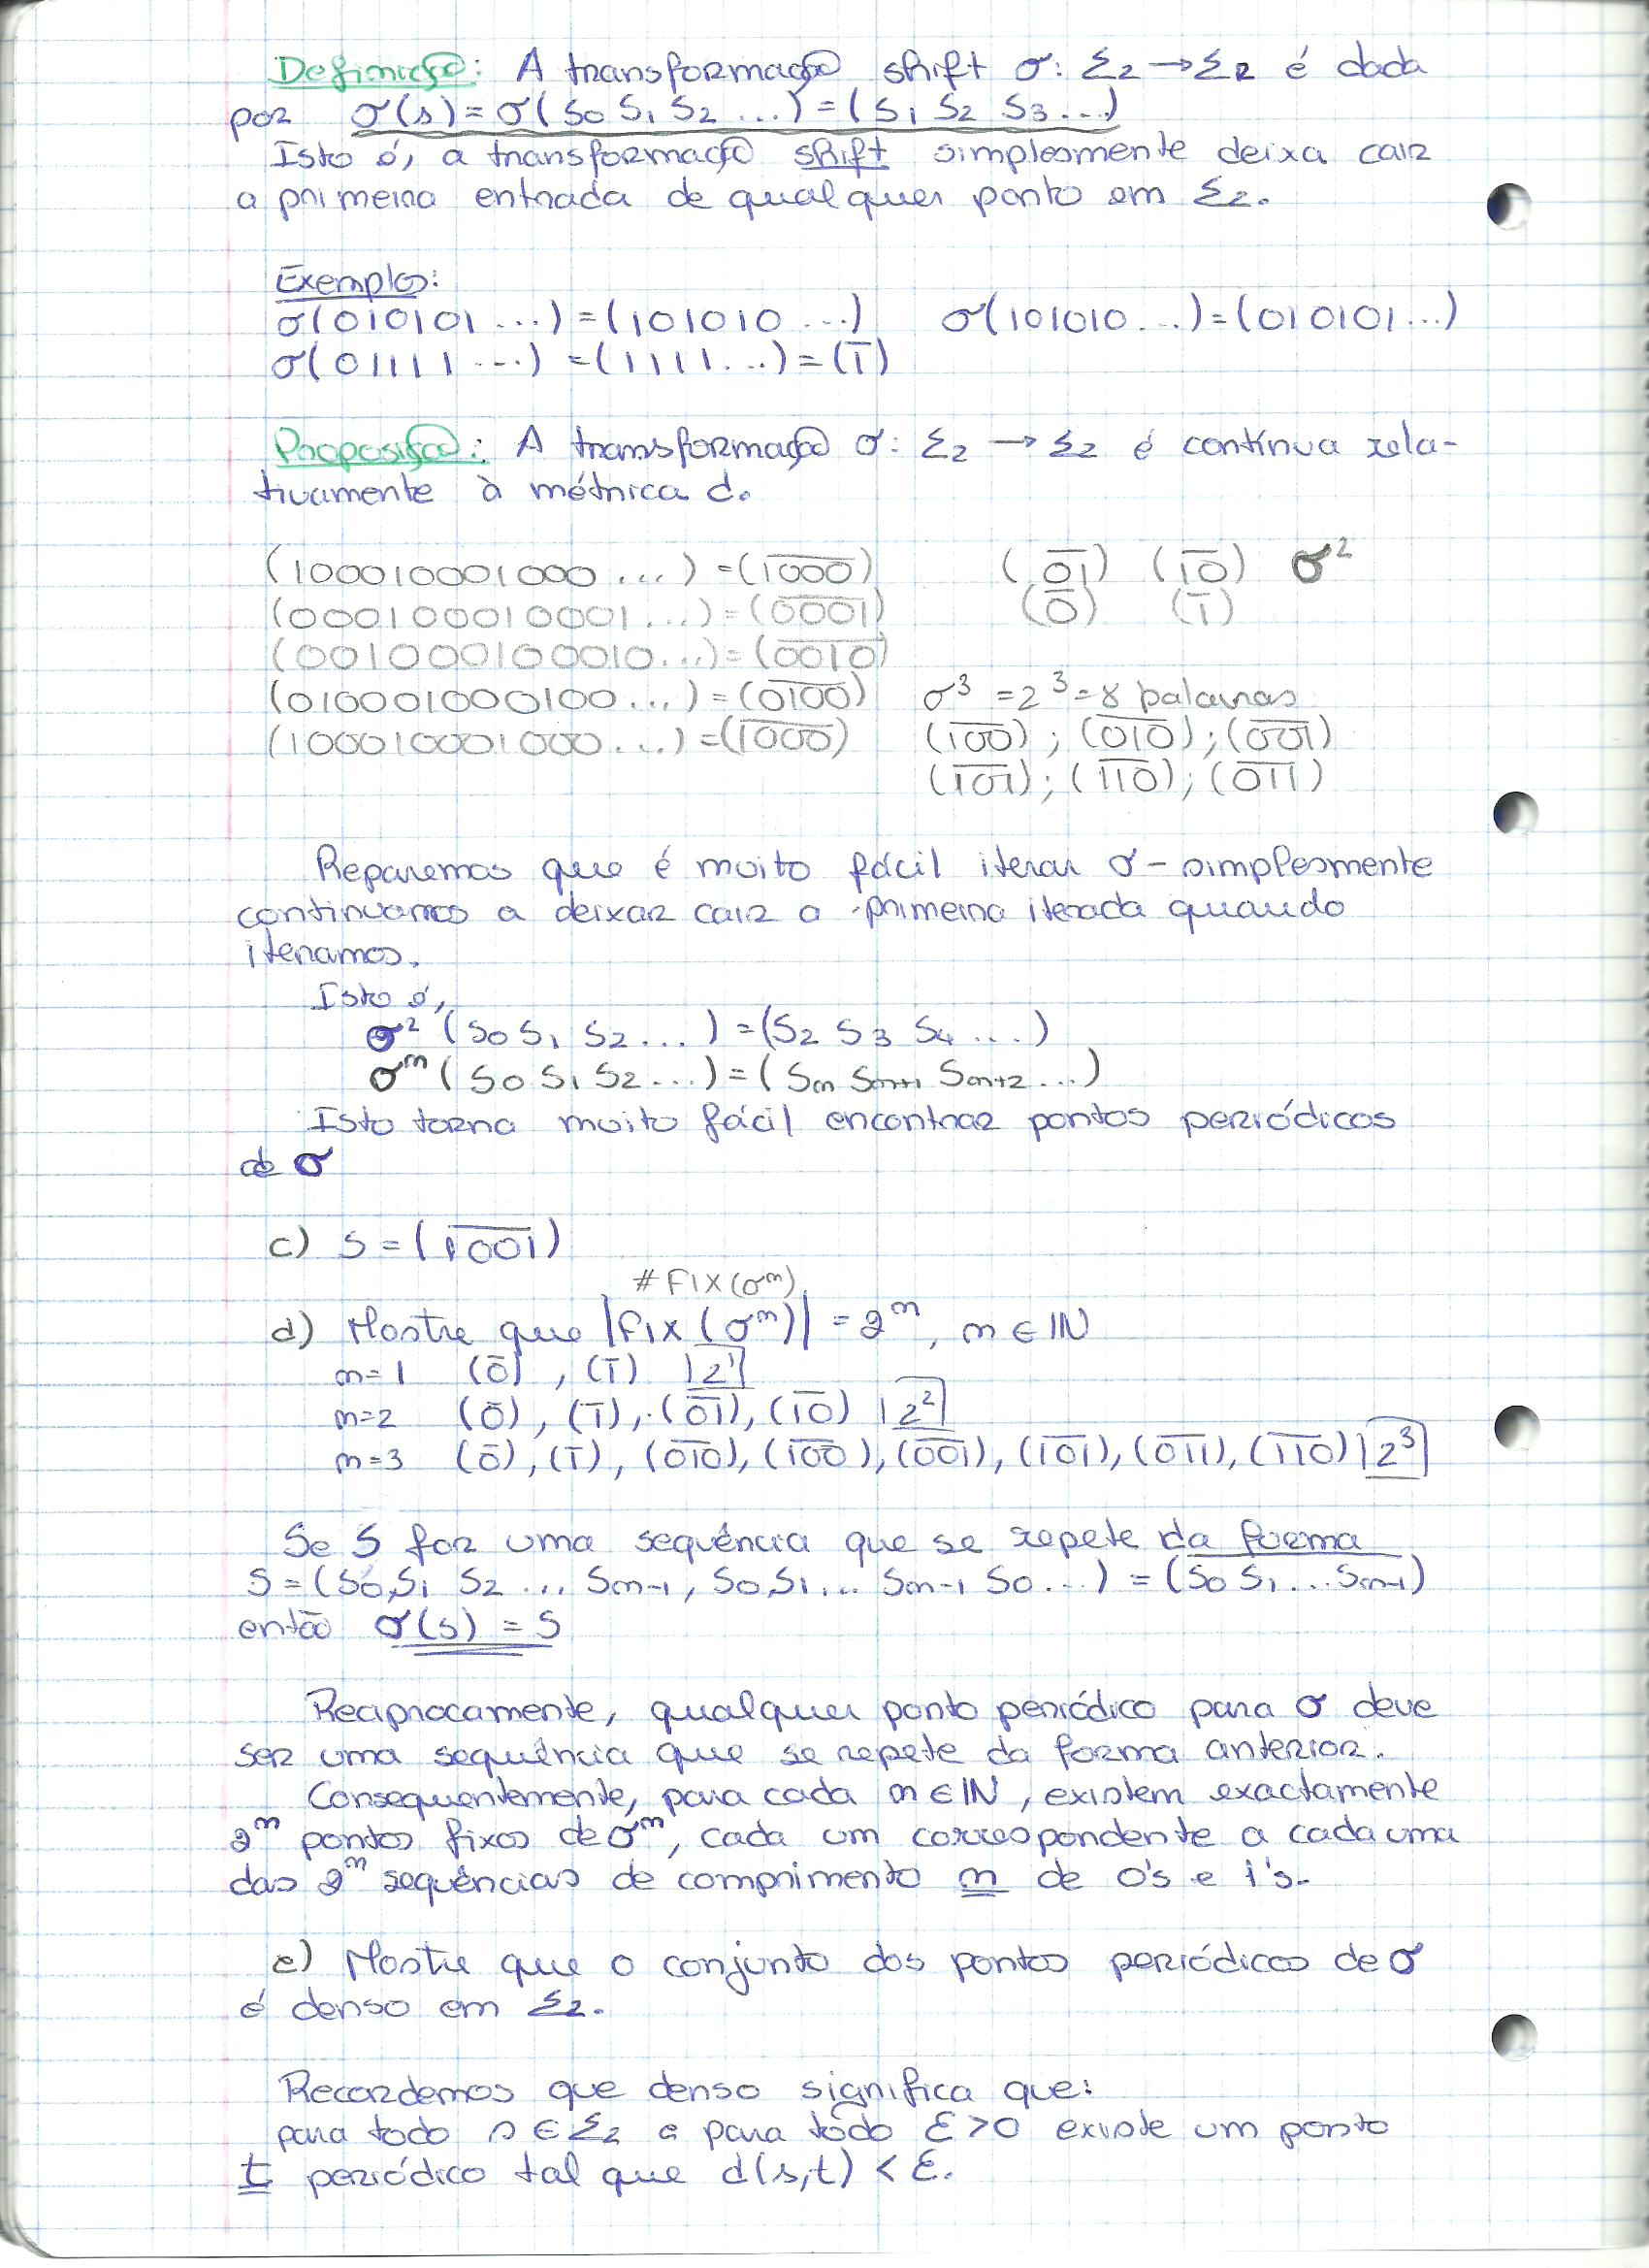 Definição: A transformação shift σ: Σ₂ → Σ₂ é dada
por σ(s) = σ(s₀ s₁ s₂ ...) = (s₁ s₂ s₃ ...)
Isto é, a transformação shift simplesmente deixa cair
a primeira entrada de qualquer ponto em Σ₂.
Exemplos:
σ(010101 ...) = (101010 ...) σ(101010 ...) = (010101 ...)
σ(01111 ...) = (1111 ...) = (1̅)
Proposição: A transformação σ: Σ₂ → Σ₂ é contínua rela-
tivamente à métrica d.
(100010001000 ...) = (1̅0̅0̅0̅) (0̅1̅) (1̅0̅) σ²
(000100010001 ...) = (0̅0̅0̅1̅) (0̅) (1̅)
(0010001000010...) = (0̅0̅1̅0̅)
(010001000100 ...) = (0̅1̅0̅0̅) σ³ = 2³ = 8 palavras
(100010001000 ...) = (1̅0̅0̅0̅) (1̅0̅0̅) ; (0̅1̅0̅) ; (0̅0̅1̅)
(1̅0̅1̅) ; (1̅1̅0̅) ; (0̅1̅1̅)
Reparemos que é muito fácil iterar σ - simplesmente
continuamos a deixar cair a primeira iterada quando
iteramos.
Isto é,
σ² (s₀ s₁ s₂ ...) = (s₂ s₃ s₄ ...)
σⁿ (s₀ s₁ s₂ ...) = (sₙ sₙ₊₁ sₙ₊₂ ...)
Isto torna muito fácil encontrar pontos periódicos
de σ
c) s = (1̅0̅0̅1̅)
# FIX(σⁿ)
d) Mostre que |Fix(σⁿ)| = 2ⁿ, n ∈ IN
n=1 (0̅) , (1̅) |2¹|
n=2 (0̅) , (1̅), (0̅1̅), (1̅0̅) |2²|
n=3 (0̅) , (1̅) , (0̅1̅0̅), (1̅0̅0̅), (0̅0̅1̅), (1̅0̅1̅), (0̅1̅1̅), (1̅1̅0̅) |2³|
Se S for uma sequência que se repete da forma
S = (s₀,s₁ s₂ ... sₙ₋₁, s₀,s₁... sₙ₋₁ s₀...) = (s̅₀̅ s̅₁̅...s̅ₙ̅₋̅₁̅)
então σ(s) = s
Reciprocamente, qualquer ponto periódico para σ deve
ser uma sequência que se repete da forma anterior.
Consequentemente, para cada n ∈ IN, existem exactamente
2ⁿ pontos fixos de σⁿ, cada um correspondente a cada uma
das 2ⁿ sequências de comprimento n de 0's e 1's.
e) Mostre que o conjunto dos pontos periódicos de σ
é denso em Σ₂.
Recordemos que denso significa que:
para todo s ∈ Σ₂ e para todo ε > 0 existe um ponto
t periódico tal que d(s,t) < ε.